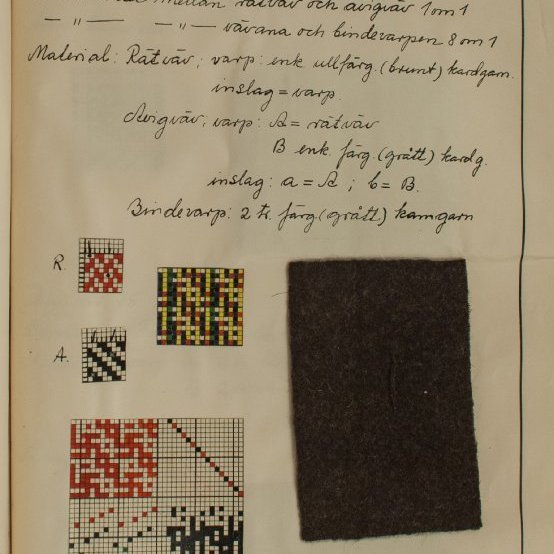 mellan rätväv och avigväv 1 om 1
— " — — " — vävana och bindevarpen 8 om 1
Material: Rätväv; varp: enk. ullfärg. (brunt) kardgarn.
inslag = varp.
Avigväv, varp: A = rätväv
B enk. färg. (grått) kardg.
inslag: a = A ; b = B.
Bindevarp: 2 tr. färg (grått) kamgarn
R.
A.